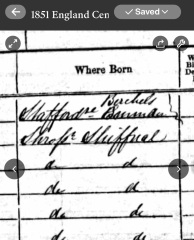 1851 England Cen
Saved
Where Born
W
B
De
Staffordre
Shrops. Shiffnal
d d
do do
do do
do do